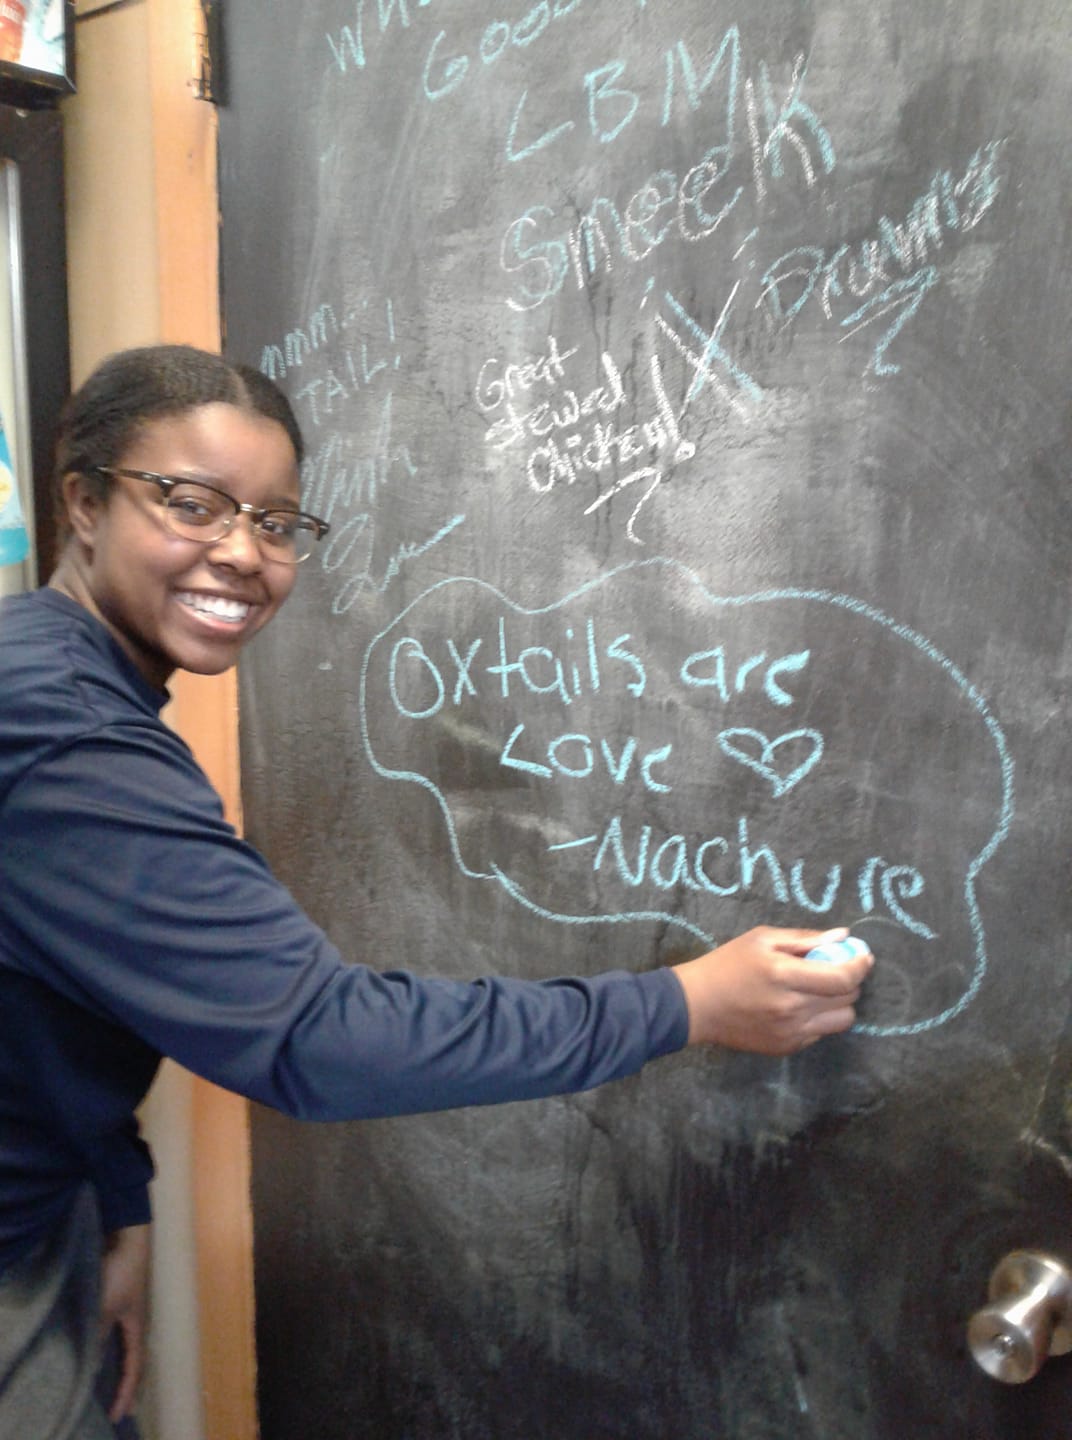 LBM
Smeek
X
Drummis
mmm..
TAIL!
Great
stewed
chicken!
Oxtails are
Love
-Nachure